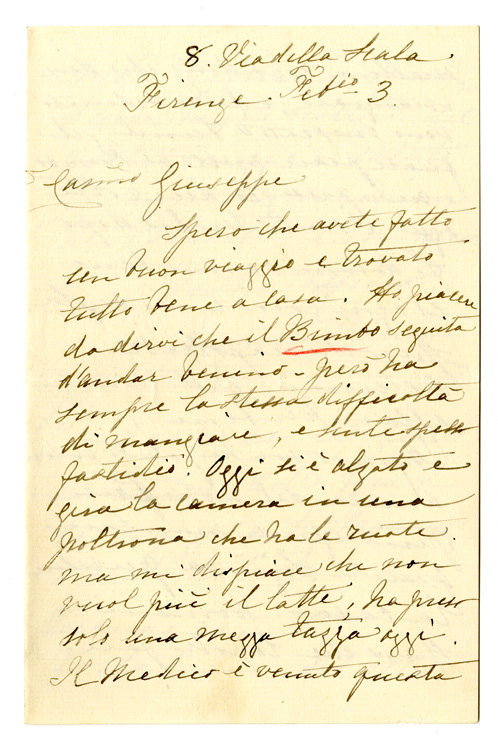 8. Via della Scala
Firenze. Febio 3.
Carmo Giuseppe
Spero che avete fatto
un buon viaggio e trovato
tutto bene a casa. Ho piacere
da dirvi che il Bimbo seguita
d'andar benino - però ha
sempre la stessa difficoltà
di mangiare, e sente spesso
fastidio. Oggi si è alzato e
gira la camera in una
poltrona che ha le ruote.
ma mi dispiace che non
vuol più il latte, ha preso
solo una mezza tazza oggi.
Il Medico è venuto questa